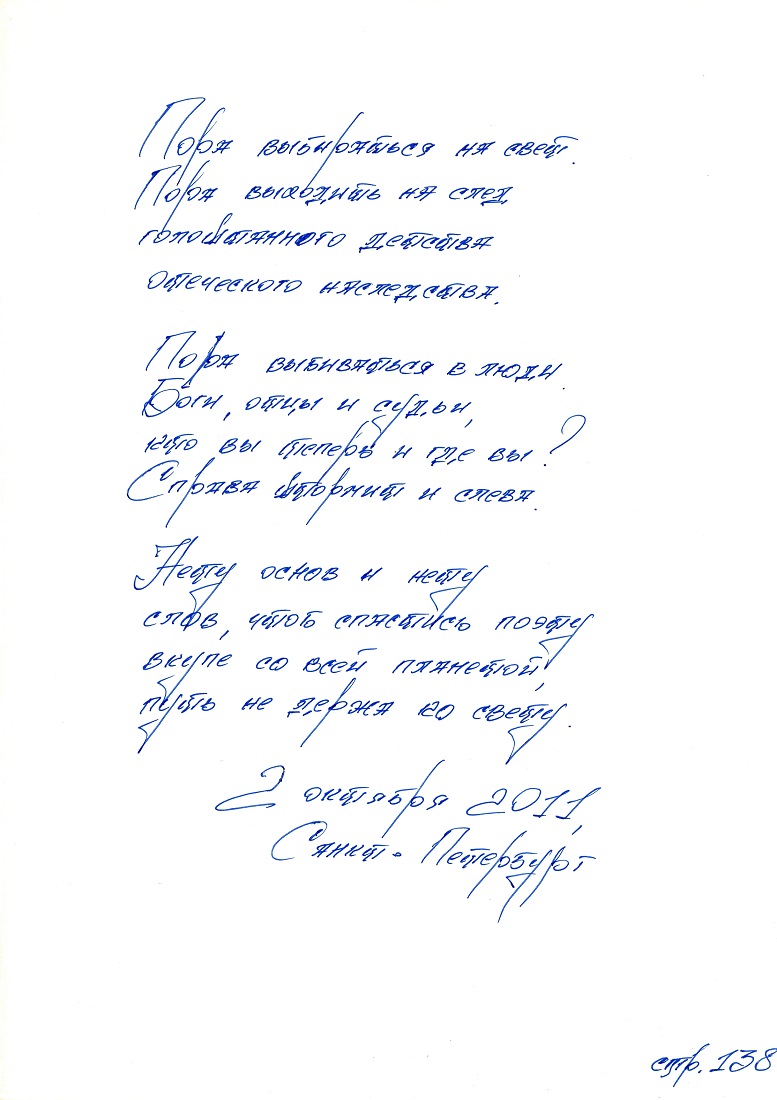 Пора выбираться на свет.
Пора выходить на след
голоштанного детства
отеческого наследства.
Пора выбиваться в люди.
Боги, отцы и судьи,
кто вы теперь и где вы?
Справа штормит и слева.
Нету основ и нету
слов, чтоб спастись поэту
вкупе со всей планетой,
путь не держа ко свету.
2 октября 2011,
Санкт-Петербург
стр. 138